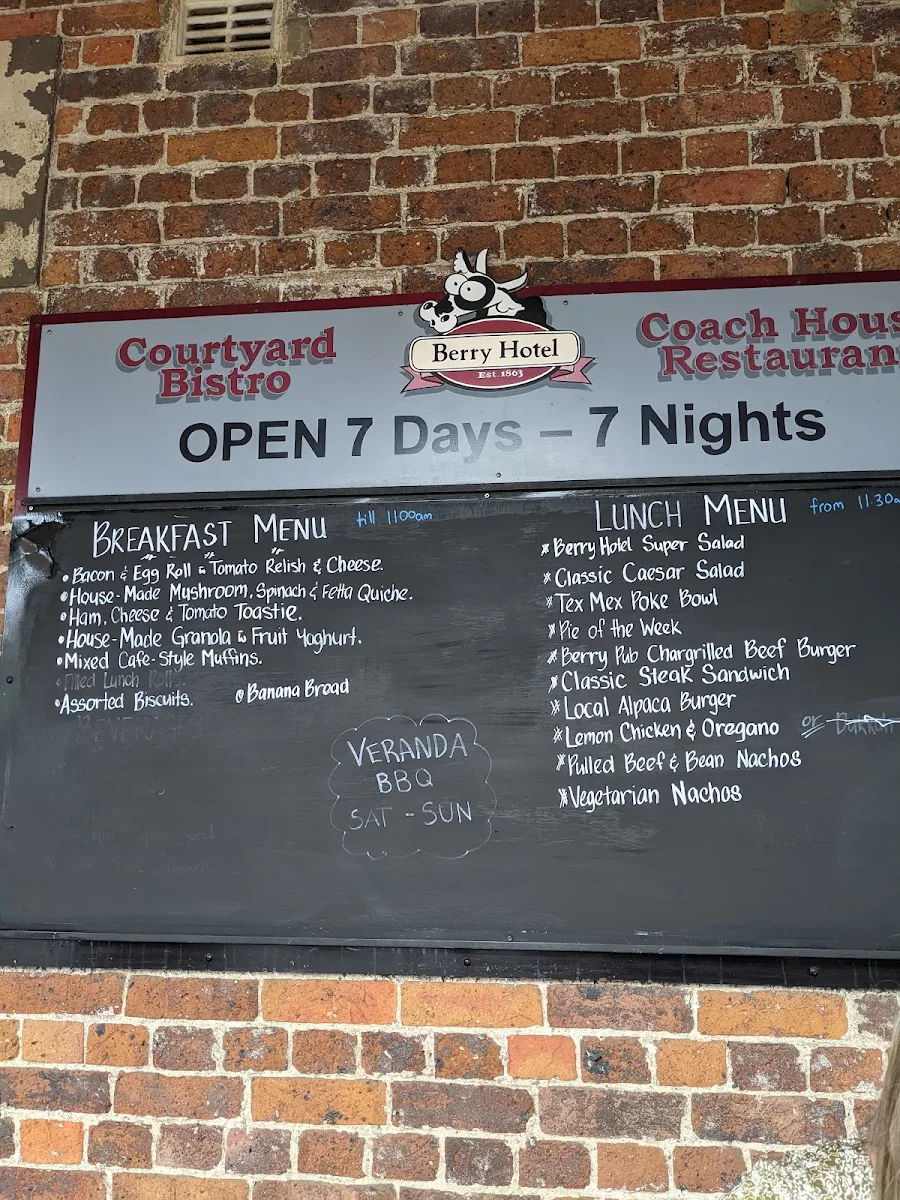 Courtyard
Bistro
Berry Hotel
Est. 1863
Coach Hous
Restauran
OPEN 7 Days – 7 Nights
BREAKFAST MENU till 11:00am
• Bacon & Egg Roll " Tomato Relish & Cheese.
• House-Made Myshroom, Spinach & Fetta Quiche.
• Ham, Cheese & Tomato Toastie.
• House-Made Granola & Fruit Yoghurt.
• Mixed Cafe-Style Muffins.
• Filled Lunch Rolls.
• Assorted Biscuits. • Banana Broad
BEVERAGES
VERANDA
BBQ
SAT - SUN
LUNCH MENU from 11.30a
* Berry Hotel Super Salad
* Classic Caesar Salad
* Tex Mex Poke Bowl
* Pie of the Week
* Berry Pub Chargrilled Beef Burger
* Classic Steak Sandwich
* Local Alpaca Burger
* Lemon Chicken & Oregano or
* Pulled Beef & Bean Nachos
* Vegetarian Nachos